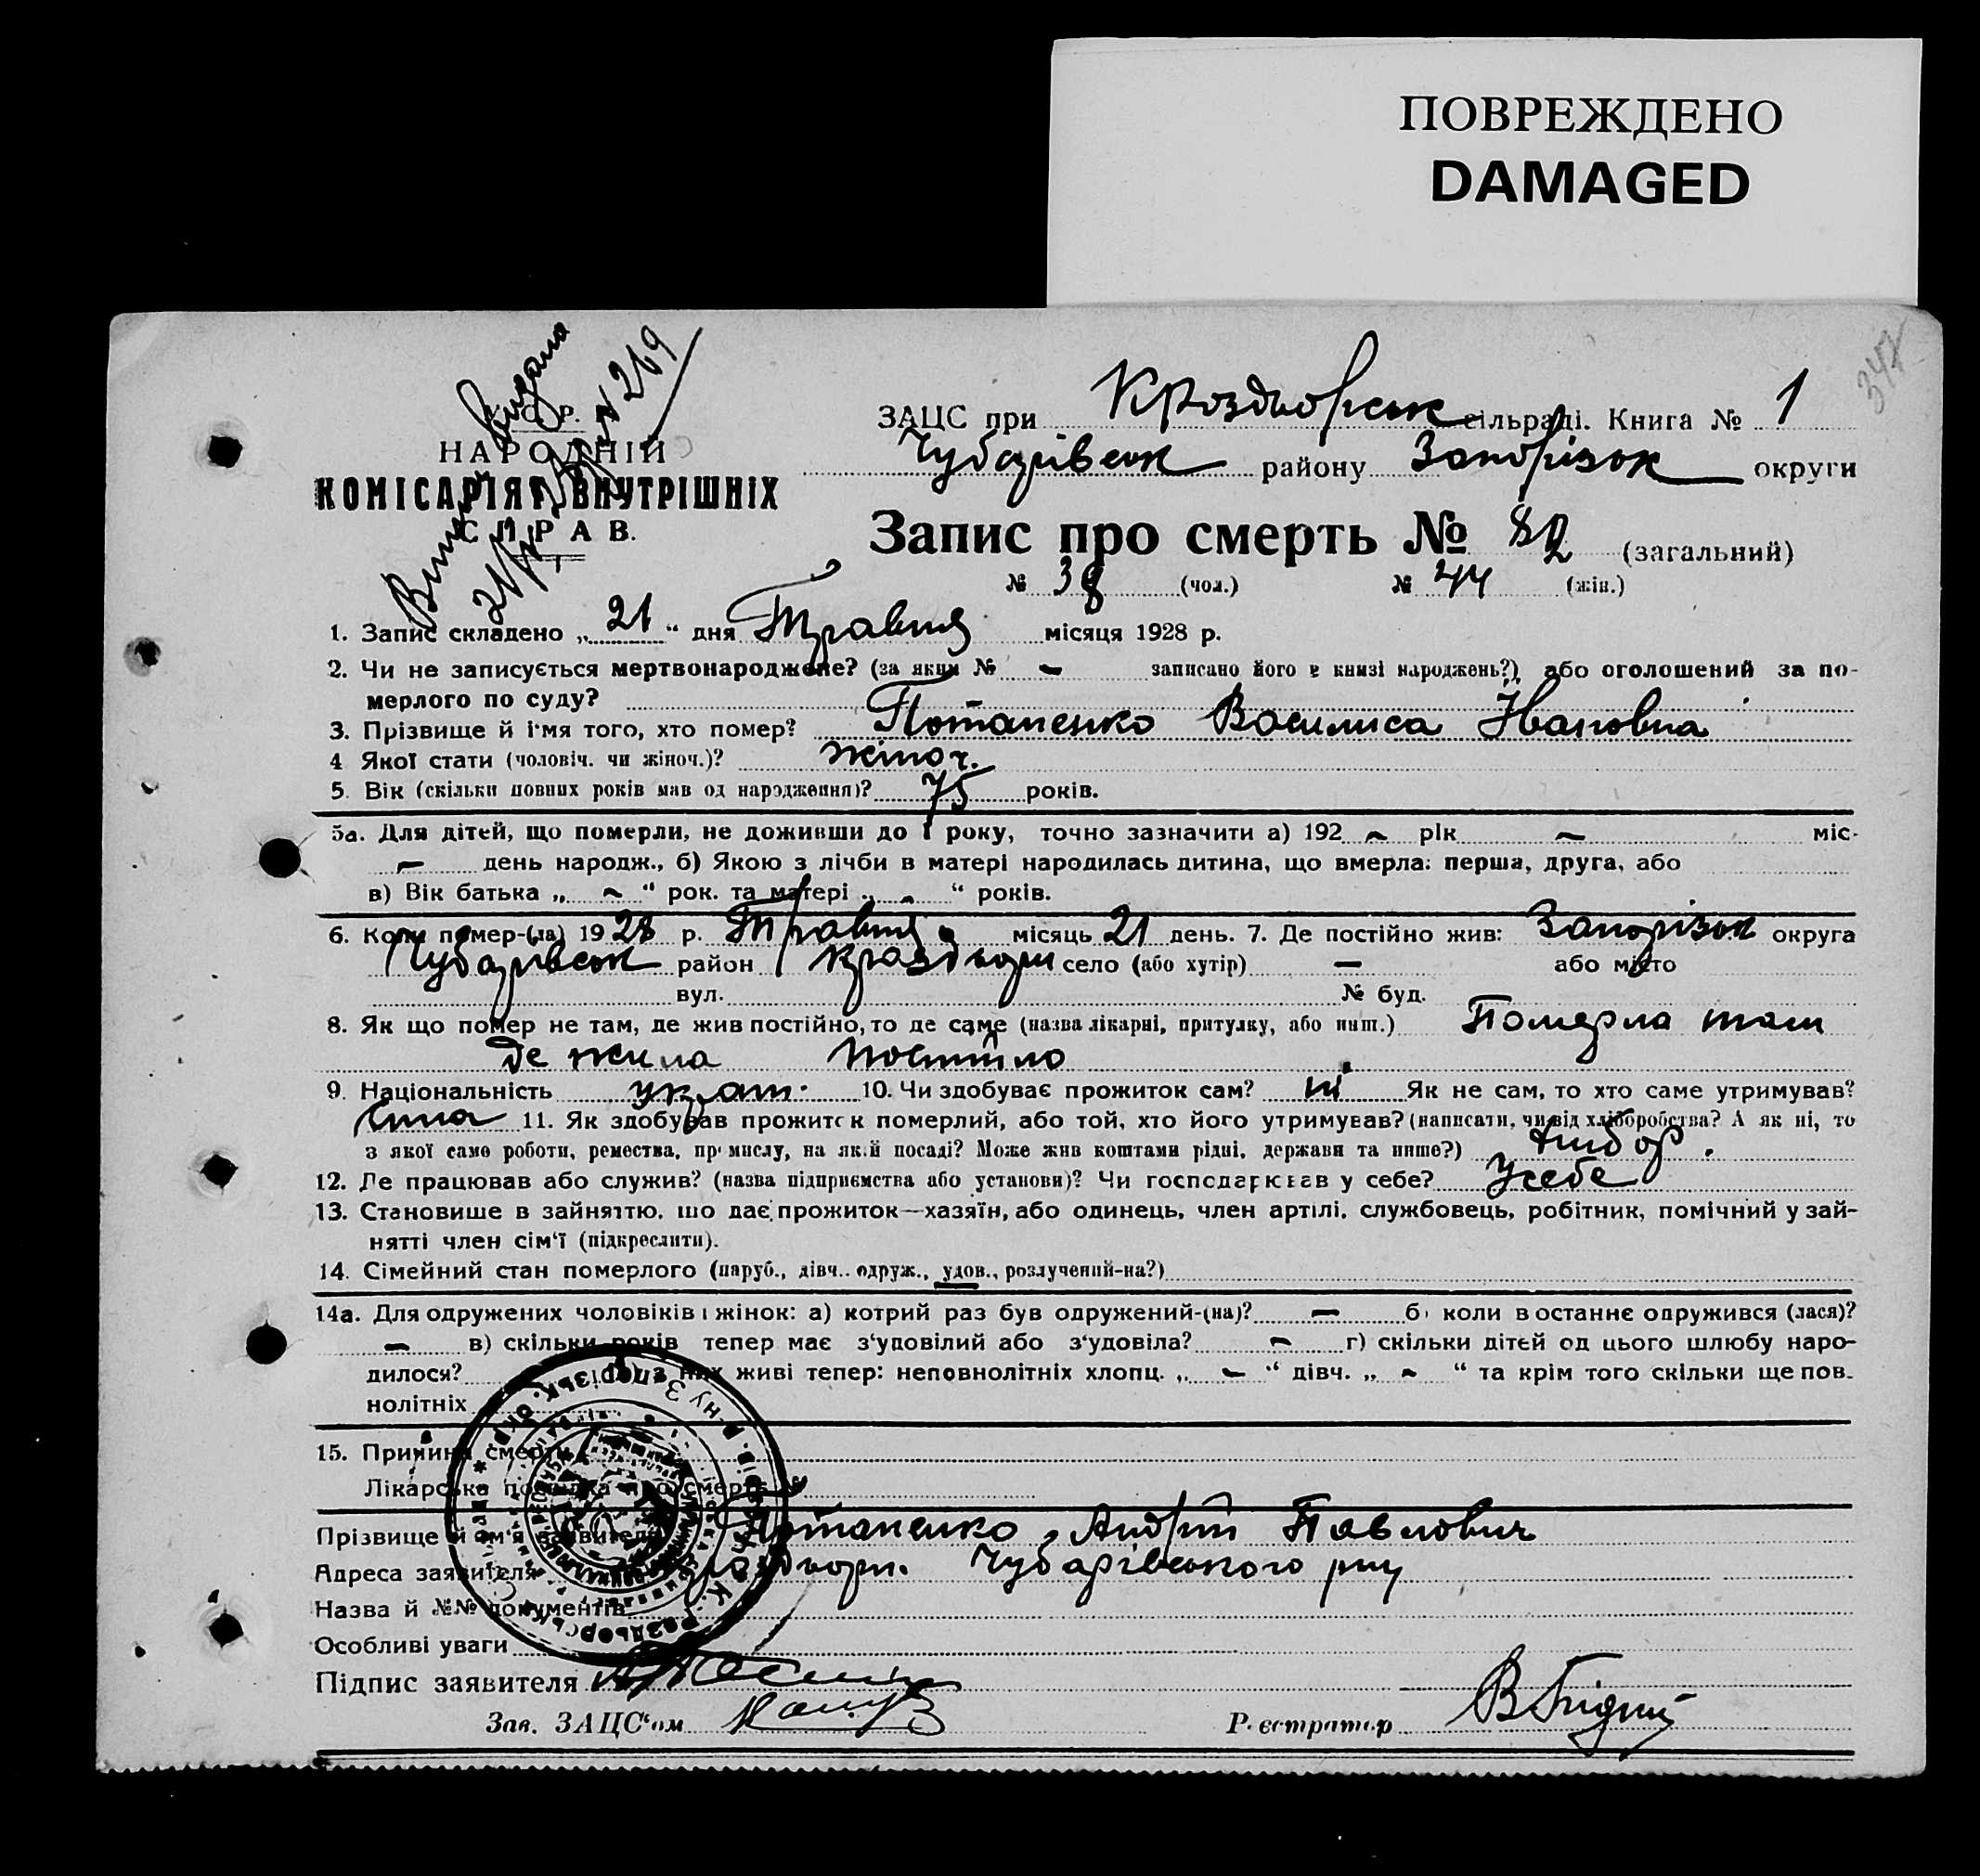 ПОВРЕЖДЕНО
DAMAGED
347
Виписка видана
21/V № 219
У. С. Р. Р.
НАРОДНІЙ
КОМІСАРІЯТ ВНУТРІШНІХ
СПРАВ.
ЗАЦС при К Роздорськ сільраді. Книга № 1
Чубарівськ району Запорізьк округи
Запис про смерть № 82 (загальний)
№ 38 (чол.) № 44 (жін.)
1. Запис складено „ 21 “ дня Травня місяця 1928 р.
2. Чи не записується мертвонароджене? (за яким № – записано його в книзі народжень?) або оголошений за по-
мерлого по суду?
3. Прізвище й ім'я того, хто помер? Потапенко Василиса Івановна
4 Якої стати (чоловіч. чи жіноч.)? жіноч.
5. Вік (скільки повних років мав од народження)? 75 років.
5а. Для дітей, що померли, не доживши до 1 року, точно зазначити а) 192 – рік – міс-
– день народж., б) Якою з лічби в матері народилась дитина, що вмерла: перша, друга, або
в) Вік батька „ – “ рок. та матері „ - “ років.
6. Коли помер-(ла) 1928 р. Травня місяць 21 день. 7. Де постійно жив: Запорізьк округа
Чубарівськ район село (або хутір) – або місто
вул. № буд.
8. Як що помер не там, де жив постійно, то де саме (назва лікарні, притулку, або инш.) Померла там
де жила постійно
9. Національність україн. 10. Чи здобуває прожиток сам? ні Як не сам, то хто саме утримував?
11. Як здобував прожиток померлий, або той, хто його утримував? (написати, чи від хліборобства? А як ні, то
з якої само роботи, ремества, промислу, на якій посаді? Може жив коштами рідні, держави та инше?) хлібор.
12. Де працював або служив? (назва підприємства або установи)? Чи господарював у себе? У себе
13. Становище в зайняттю, що дає прожиток—хазяїн, або одинець, член артілі, службовець, робітник, помічний у зай-
нятті член сім'ї (підкреслити).
14. Сімейний стан померлого (паруб., дівч.. одруж., удов., розлучений-на?)
14а. Для одружених чоловіків і жінок: а) котрий раз був одружений-(на)? – б) коли востаннє одружився (лася)?
– в) скільки років тепер має з'удовілий або з'удовіла? – г) скільки дітей од цього шлюбу наро-
дилося? д) з них живі тепер: неповнолітніх хлопц. „ – “ дівч. „ – “ та крім того скільки ще пов-
нолітніх
15. Причина смерти
Лікарська посвідка про смерть
Прізвище й ім'я заявителя Потапенко Андрій Павлович
Адреса заявителя Чубарівського р-ну
Назва й №№ документів
Особливі уваги
Підпис заявителя
Зав. ЗАЦС'ом
Реєстратор В Бідний